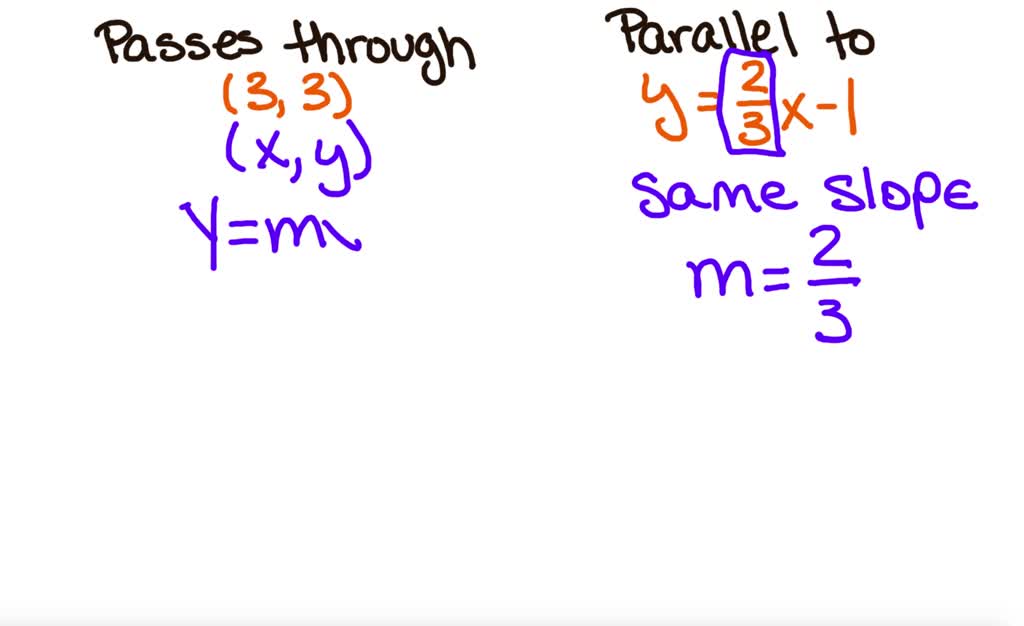 Passes through
(3, 3)
(x, y)
y=m
Parallel to
y = 2/3 x - 1
Same slope
m = 2/3